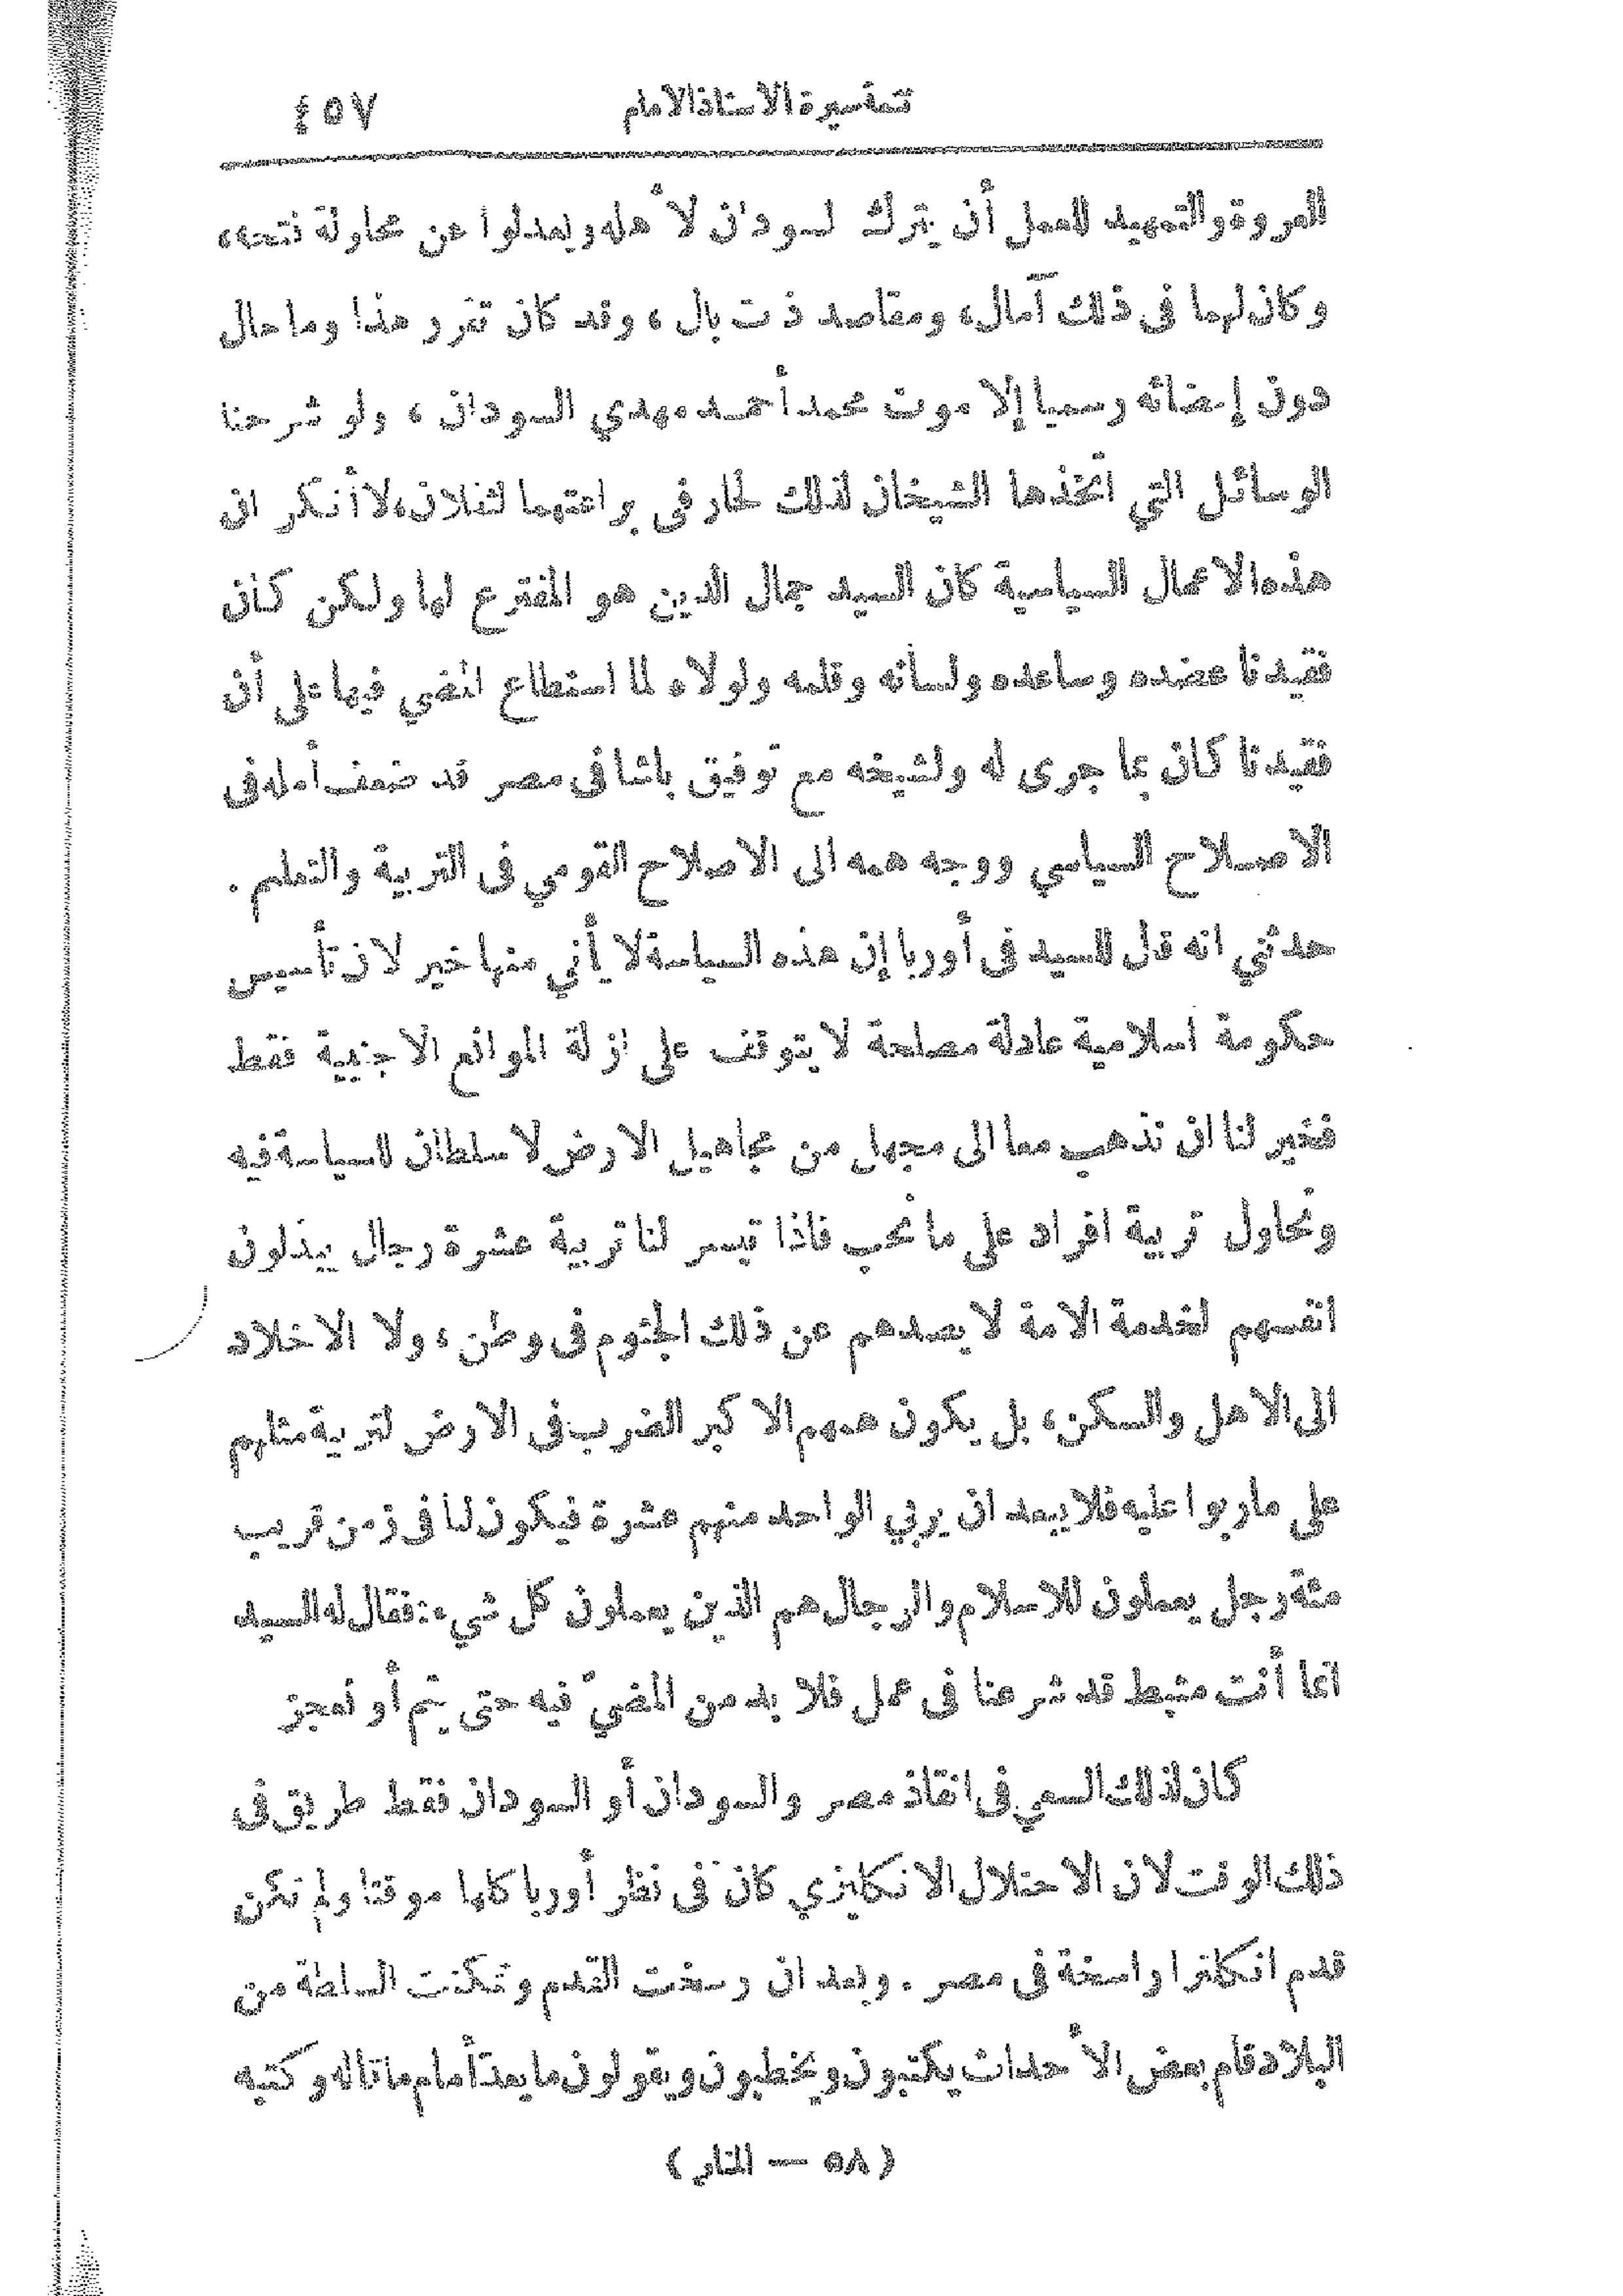 تتمة سيرة الاستاذ الامام ٤٥٧
للعروة والتمهيد للعمل أن يترك السودان لأهله ويعدلوا عن محاولة فتحه،
وكان لهما في ذلك آمال، ومقاصد ذات بال، وقد كان تقرر هذا وما حال
دون إمضائه رسميا إلا موت محمد أحمد مهدي السودان، ولو شرحنا
الوسائل التي اتخذها الشيخان لذلك لحار في براعتهما الثقلان، لا أنكر ان
هذه الاعمال السياسية كان السيد جمال الدين هو المقترع لها ولكن كان
فقيدنا عضده وساعده ولسانه وقلمه ولولاه لما استطاع المضي فيها على أن
فقيدنا كان بما جرى له ولشيخه مع توفيق باشا في مصر قد ضعف أمله في
الاصلاح السياسي ووجه همه الى الاصلاح القومي في التربية والتعليم.
حدثني انه قال للسيد في أوربا إن هذه السياسة لا يأتي منها خير لان تأسيس
حكومة اسلامية عادلة مصلحة لا يتوقف على ازالة الموانع الاجنبية فقط
فخير لنا ان نذهب معا الى مجهل من مجاهيل الارض لا سلطان للسياسة فيه
ونحاول تربية افراد على ما نحب فاذا تيسر لنا تربية عشرة رجال يبذلون
انفسهم لخدمة الامة لا يصدهم عن ذلك الجثوم في وطن، ولا الاخلاد
الى الاهل والسكن، بل يكون همهم الاكبر الضرب في الارض لتربية مثلهم
على ما ربوا عليه فلا يبعد ان يربي الواحد منهم عشرة فيكون لنا في زمن قريب
مئة رجل يعملون للاسلام والرجال هم الذين يعملون كل شيء: فقال له السيد
انما أنت مثبط قد شرعنا في عمل فلا بد من المضيّ فيه حتى يتم أو نعجز
كان لذلك السعي في انقاذ مصر والسودان أو السودان فقط طريق في
ذلك الوقت لان الاحتلال الانكليزي كان في نظر أوربا كلها موقتا ولم تكن
قدم انكلترا راسخة في مصر. وبعد ان رسخت القدم وتمكنت السلطة من
البلاد قام بعض الأحداث يكتبون ويخطبون ويقولون ما يعد أمام ما قاله وكتبه
(٥٨ — المنار)